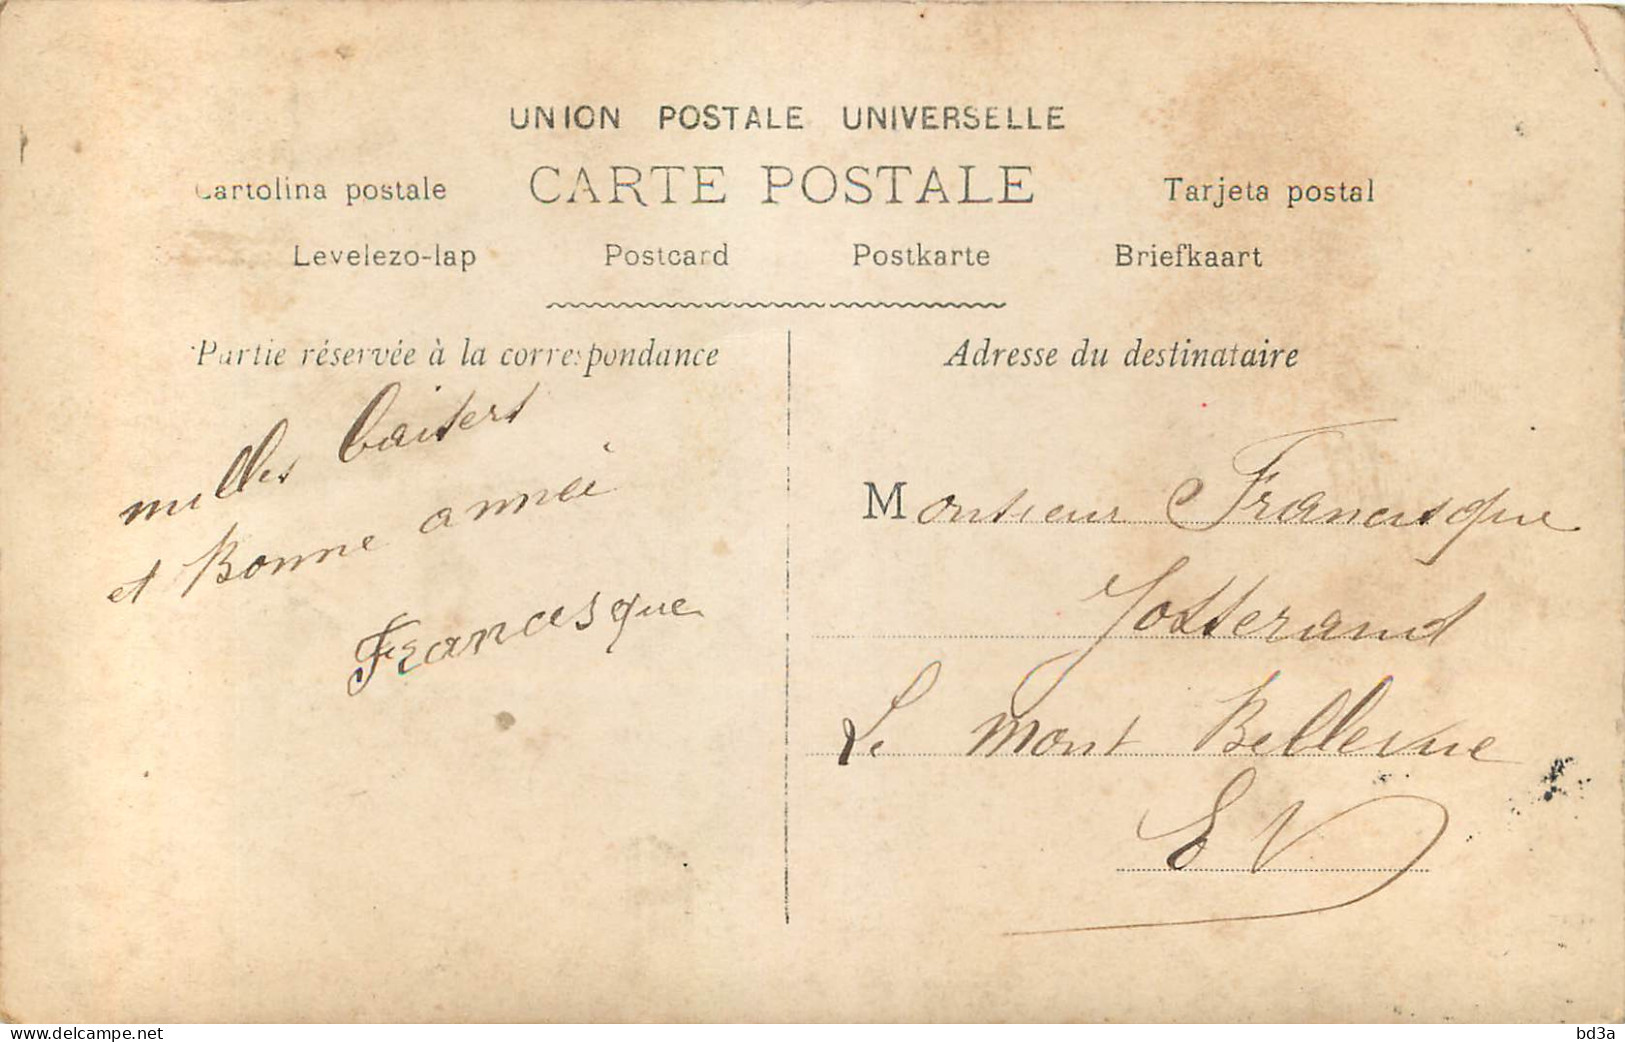 UNION POSTALE UNIVERSELLE
Cartolina postale CARTE POSTALE Tarjeta postal
Levelezo-lap Postcard Postkarte Briefkaart
Partie réservée à la correspondance
milles baisers
et Bonne année
Francisque
Adresse du destinataire
Monsieur Francisque
Josserand
Le Mont Bellevue
E V
www.delcampe.net
bd3a